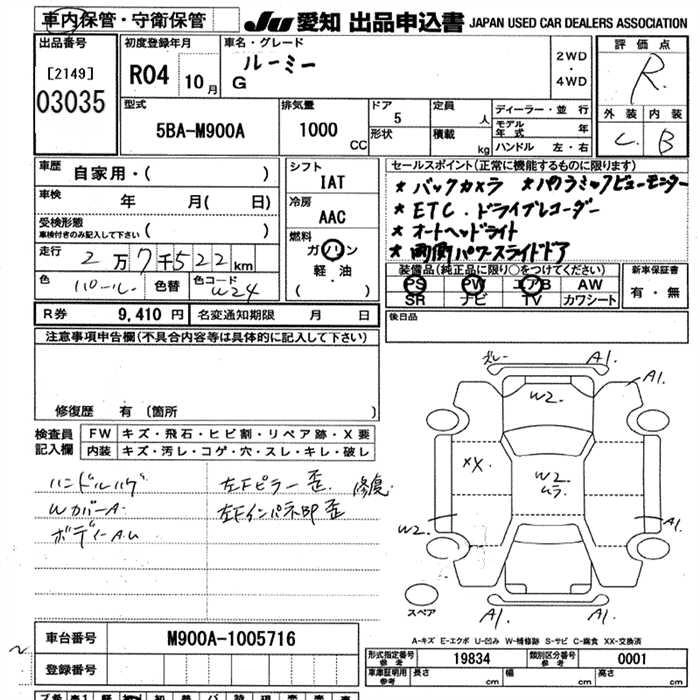 車内保管・守衛保管
JU 愛知 出品申込書 JAPAN USED CAR DEALERS ASSOCIATION
出品番号
[2149]
03035
初度登録年月
R04 10月
車名・グレード
ルーミー
G
2WD
・
4WD
評価点
R
外装 内装
C B
型式
5BA-M900A
排気量
1000 CC
ドア
5
形状
定員
人
積載
kg
ディーラー・並行
モデル年式 年
ハンドル 左・右
車歴
自家用・( )
車検
年 月( 日)
受検形態
車検付きのみ記入して下さい ( )
走行
2万7千522km
色
パール
色替
色コード
W24
シフト
IAT
冷房
AAC
燃料
ガソリン
軽・油
( )
セールスポイント(正常に機能するものに限ります)
★ バックカメラ ★ パノラミックビューモニター
★ ETC.ドライブレコーダー
★ オートヘッドライト
★ 両側パワースライドドア
装備品(純正品に限り○をつけてください)
PS PW エアB AW
SR ナビ TV カワシート
新車保証書
有・無
R券 9,410円
名変通知期限 月 日
後日品
注意事項申告欄(不具合内容等は具体的に記入して下さい)
修復歴 有 (箇所 )
検査員記入欄
FW キズ・飛石・ヒビ割・リペア跡・X要
内装 キズ・汚レ・コゲ・穴・スレ・キレ・破レ
ハンドルハゲ
WカバーA
ボディーA.U
左Fピラー歪 修復
左Fインパネ部歪
ズレー
A1.
A1.
W2.
XX.
W2
ムラ.
W2.
A1.
スペア
A1.
A1.
A-キズ E-エクボ U-凹み W-補修跡 S-サビ C-腐食 XX-交換済
車台番号
M900A-1005716
登録番号
形式指定番号
参考
19834
類別区分番号
参考
0001
車庫証明用
参考
長さ cm
幅 cm
高さ cm